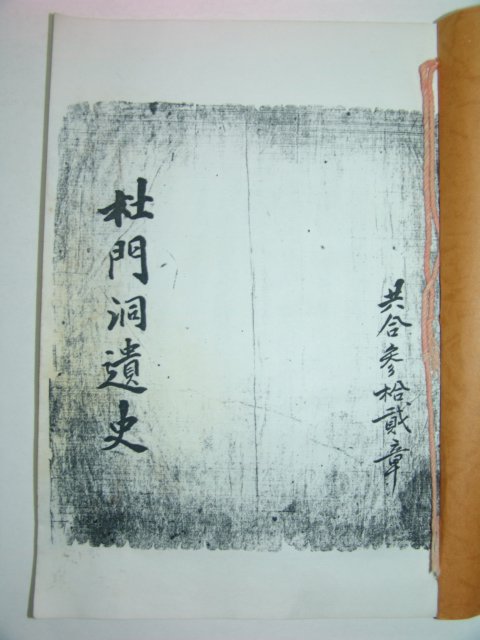 共合參拾貳章
杜門洞遺史